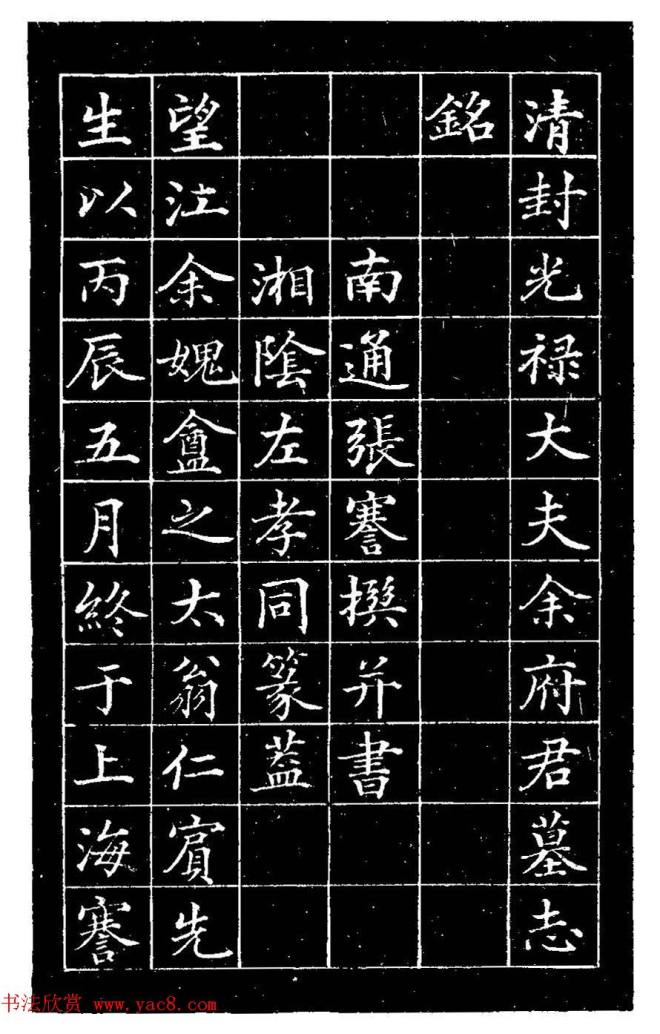 清封光禄大夫余府君墓志
銘
南通張謇撰并書
湘陰左孝同篆蓋
望江余媿盦之太翁仁賓先
生以丙辰五月終于上海謇
书法欣赏 www.yac8.com